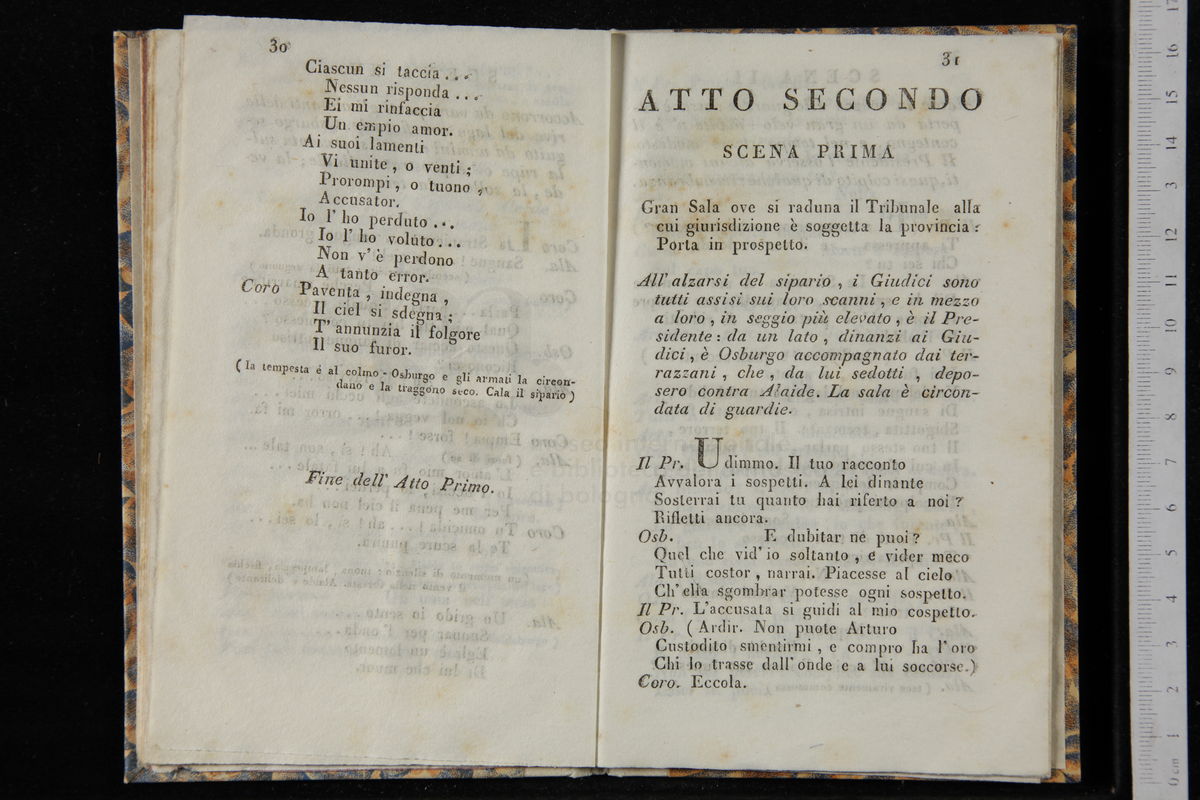 30
Ciascun si taccia . . .
Nessun risponda . . .
Ei mi rinfaccia
Un empio amor.
Ai suoi lamenti
Vi unite , o venti ;
Prorompi , o tuono ,
Accusator.
Io l' ho perduto . . .
Io l' ho voluto . . .
Non v' è perdono
A tanto error.
Coro Paventa , indegna ,
Il ciel si sdegna ;
T' annunzia il folgore
Il suo furor.
( la tempesta é al colmo - Osburgo e gli armati la circon-
dano e la traggono seco. Cala il sipario )
Fine dell' Atto Primo.
31
ATTO SECONDO
SCENA PRIMA
Gran Sala ove si raduna il Tribunale alla
cui giurisdizione è soggetta la provincia :
Porta in prospetto.
All' alzarsi del sipario , i Giudici sono
tutti assisi sui loro scanni , e in mezzo
a loro , in seggio più elevato , è il Pre-
sidente : da un lato , dinanzi ai Giu-
dici , è Osburgo accompagnato dai ter-
razzani , che , da lui sedotti , depo-
sero contra Alaide. La sala è circon-
data di guardie.
Il Pr. Udimmo. Il tuo racconto
Avvalora i sospetti. A lei dinante
Sosterrai tu quanto hai riferto a noi ?
Rifletti ancora.
Osb. E dubitar ne puoi ?
Quel che vid' io soltanto , e vider meco
Tutti costor , narrai. Piacesse al cielo
Ch' ella sgombrar potesse ogni sospetto.
Il Pr. L'accusata si guidi al mio cospetto.
Osb. ( Ardir. Non puote Arturo
Custodito smentirmi , e compro ha l' oro
Chi lo trasse dall' onde e a lui soccorse.)
Coro. Eccola.